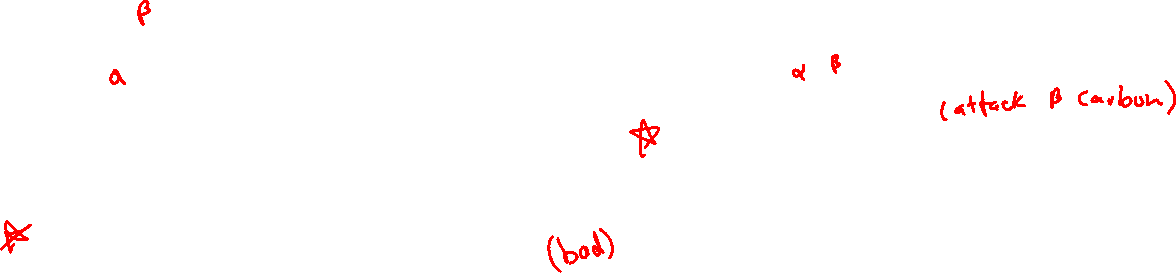 β
α
α β
(attack β carbon)
(bad)